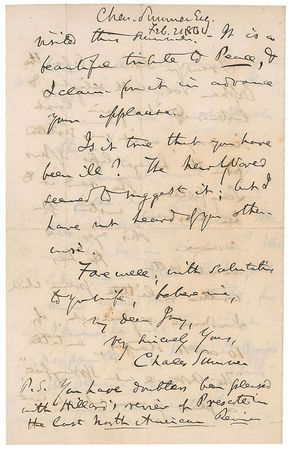 Chas. Sumner Esq.
Feb. 2
visited this summer. It is a
beautiful tribute to Peace, &
I claim for it in advance
your applause.
Is it true that you have
been ill? The
seemed to suggest it; but I
have not heard of you other-
wise.
Farewell; with salutations
to your wife, believe me,
My dear Jay,
Very sincerely Yours,
Charles Sumner
P.S. You have doubtless been pleased
with Hillard's review of Prescott in
the last North American Review